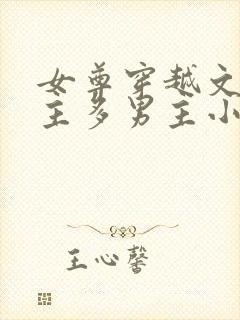 女尊穿越文
主多男主小
王心馨